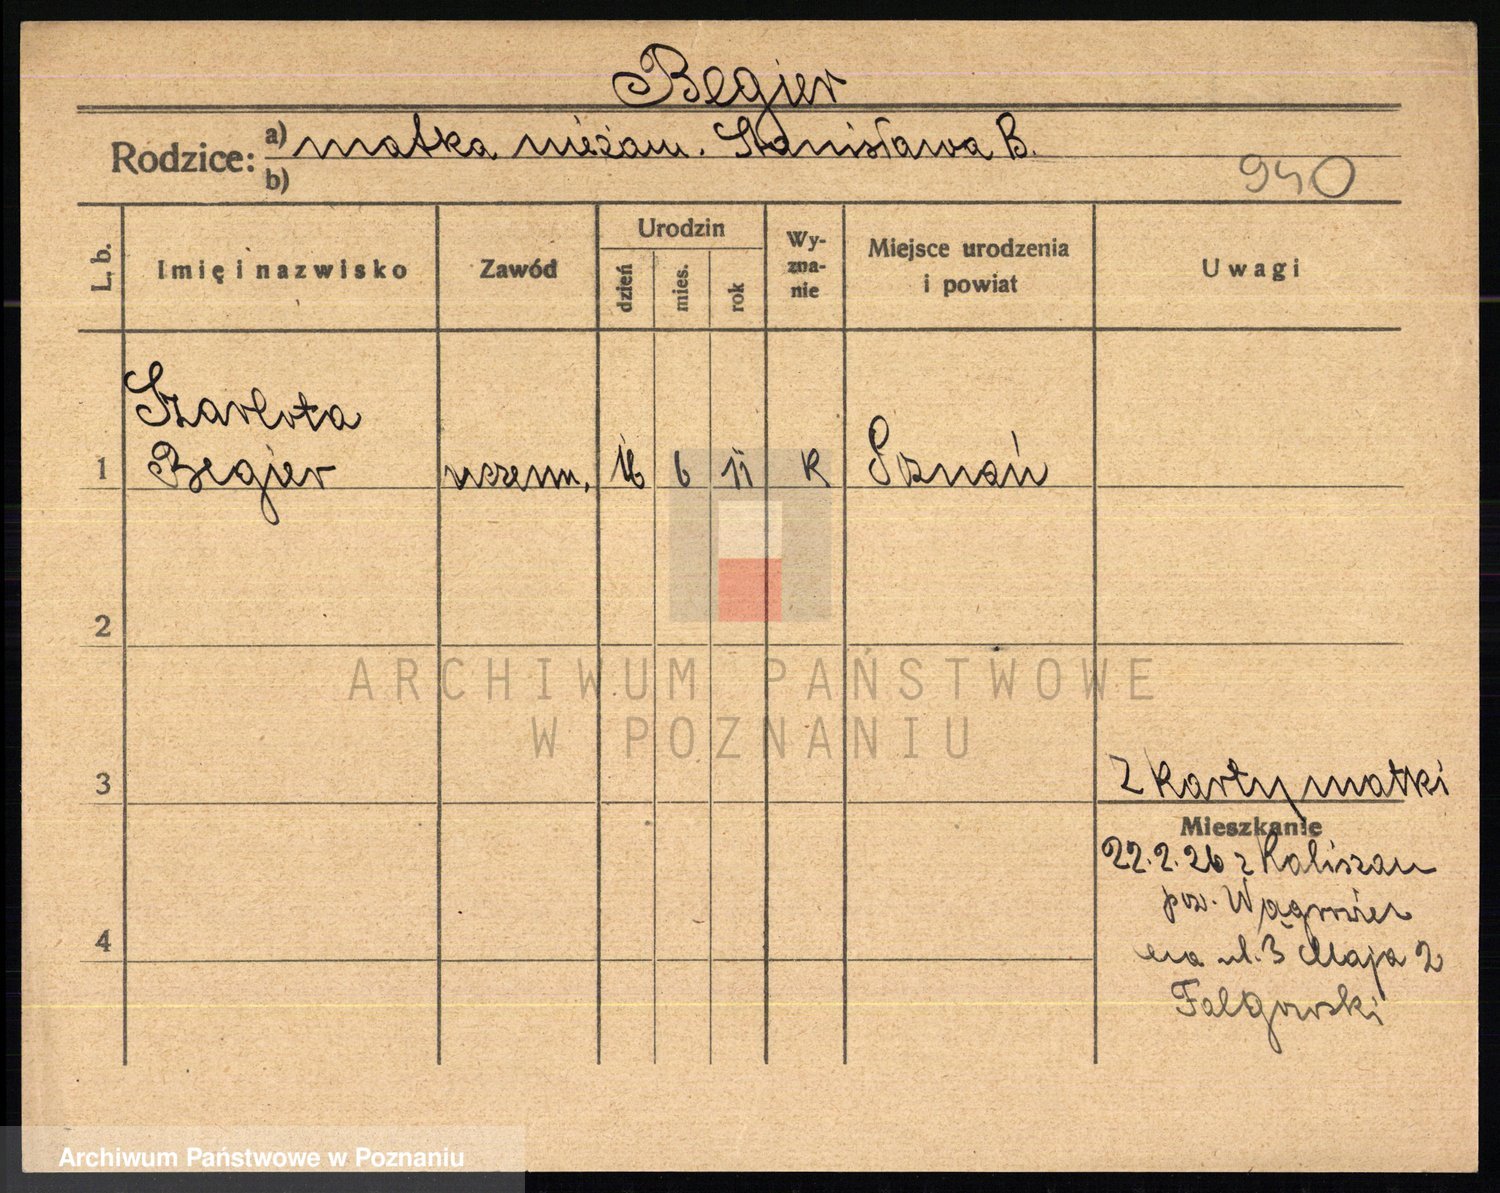 Begier
Rodzice: a) matka niezam. Stanisława B.
b)
940
L. b.
Imię i nazwisko
Zawód
Urodzin
dzień
mies.
rok
Wy-
zna-
nie
Miejsce urodzenia
i powiat
Uwagi
Szarlota
1 Begier uczenn. 16 6 11 K Poznań
2
3
4
ARCHIWUM PAŃSTWOWE
W POZNANIU
Z karty matki
Mieszkanie
22.2.26 z Kaliszan
pow. Wągrowiec
na ul. 3 Maja 2
Falgowski
Archiwum Państwowe w Poznaniu